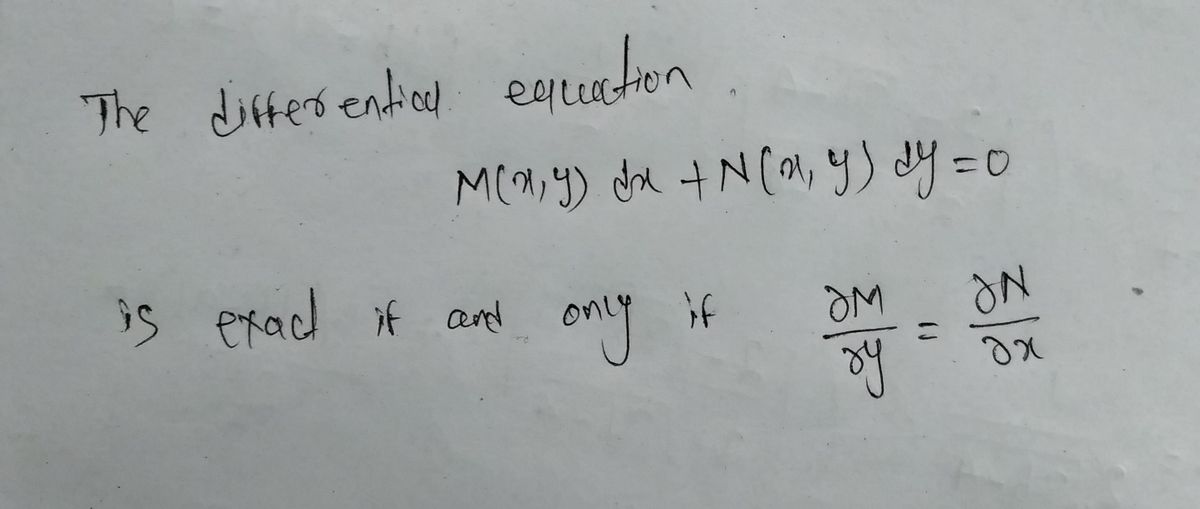 The differential equation
M(x,y) dx + N(x,y) dy = 0
is exact if and only if ∂M/∂y = ∂N/∂x